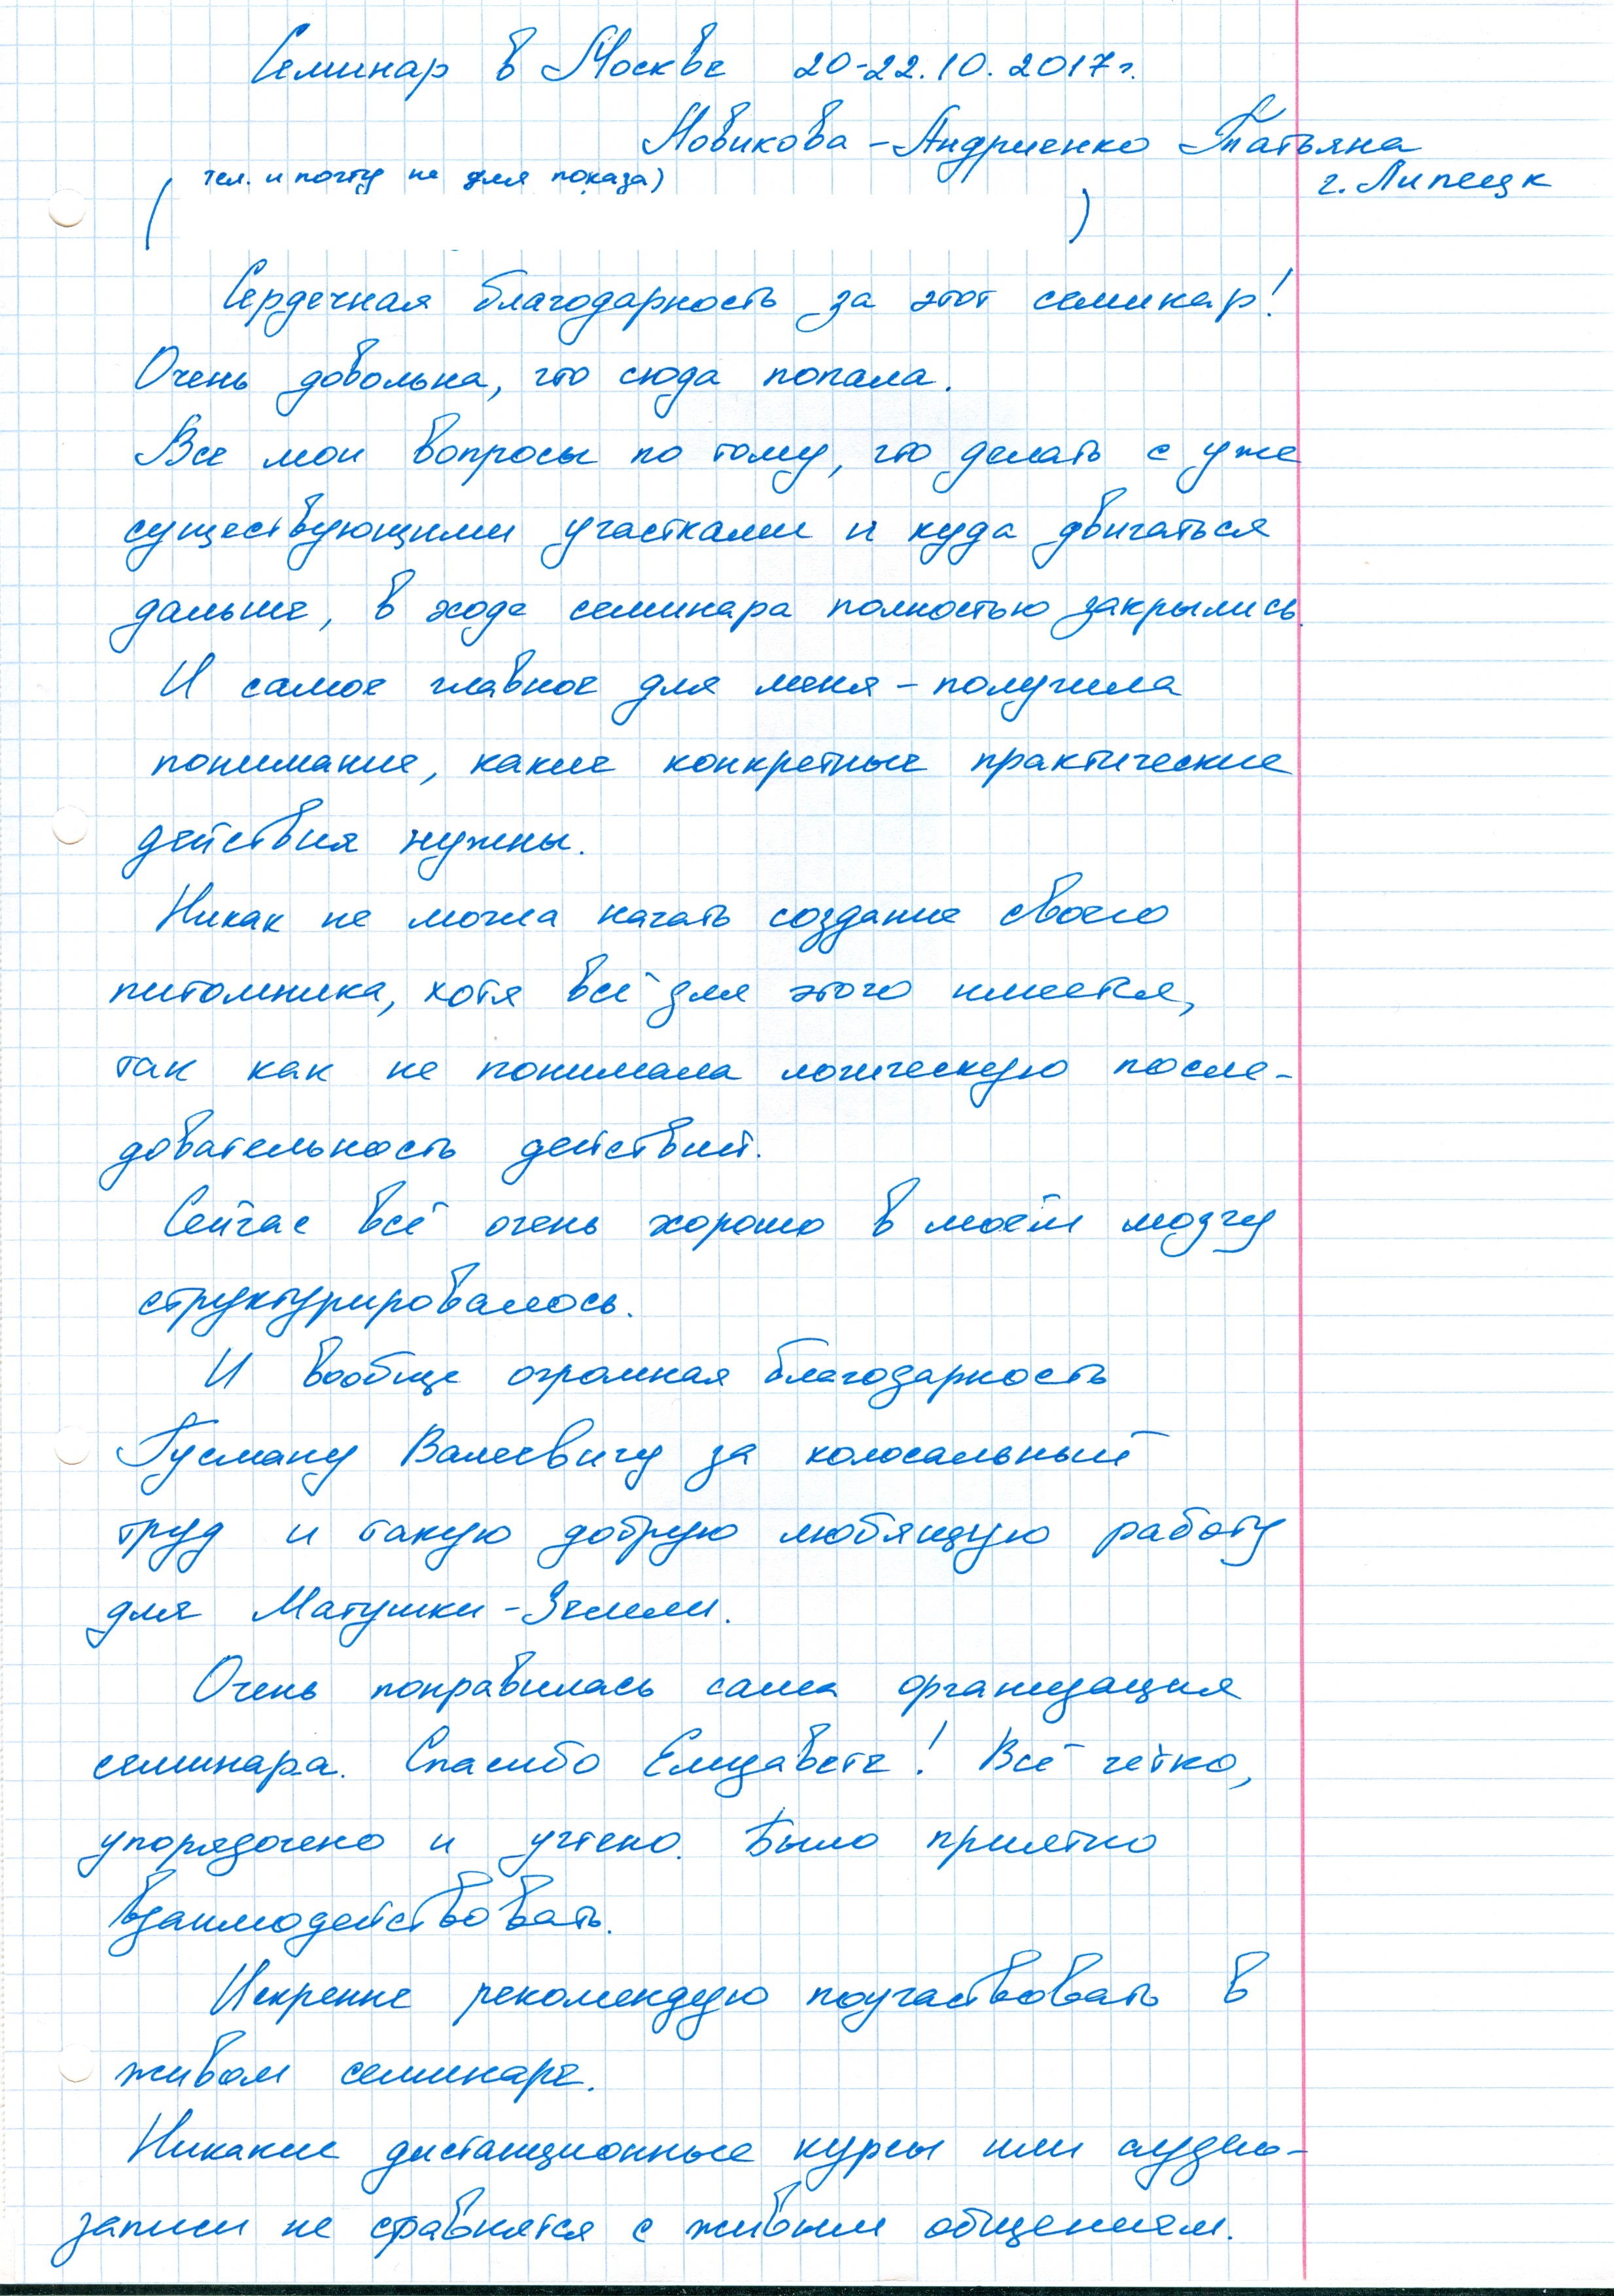 Семинар в Москве 20-22.10.2017г.
Новикова-Андриенко Татьяна
г. Липецк
(тел. и почту не для показа)
Сердечная благодарность за этот семинар!
Очень довольна, что сюда попала.
Все мои вопросы по тому, что делать с уже
существующими участками и куда двигаться
дальше, в ходе семинара полностью закрылись.
И самое главное для меня - получила
понимание, какие конкретные практические
действия нужны.
Никак не могла начать создание своего
питомника, хотя всё для этого имеется,
так как не понимала логическую после-
довательность действий.
Сейчас всё очень хорошо в моём мозгу
структурировалось.
И вообще огромная благодарность
Гусману Валеевичу за колосальный
труд и такую добрую любящую работу
для Матушки-Земли.
Очень понравилась сама организация
семинара. Спасибо Елизавете! Всё чётко,
упорядочено и учтено. Было приятно
взаимодействовать.
Искренне рекомендую поучаствовать в
живом семинаре.
Никакие дистанционные курсы или аудио-
записи не сравнятся с живым общением.